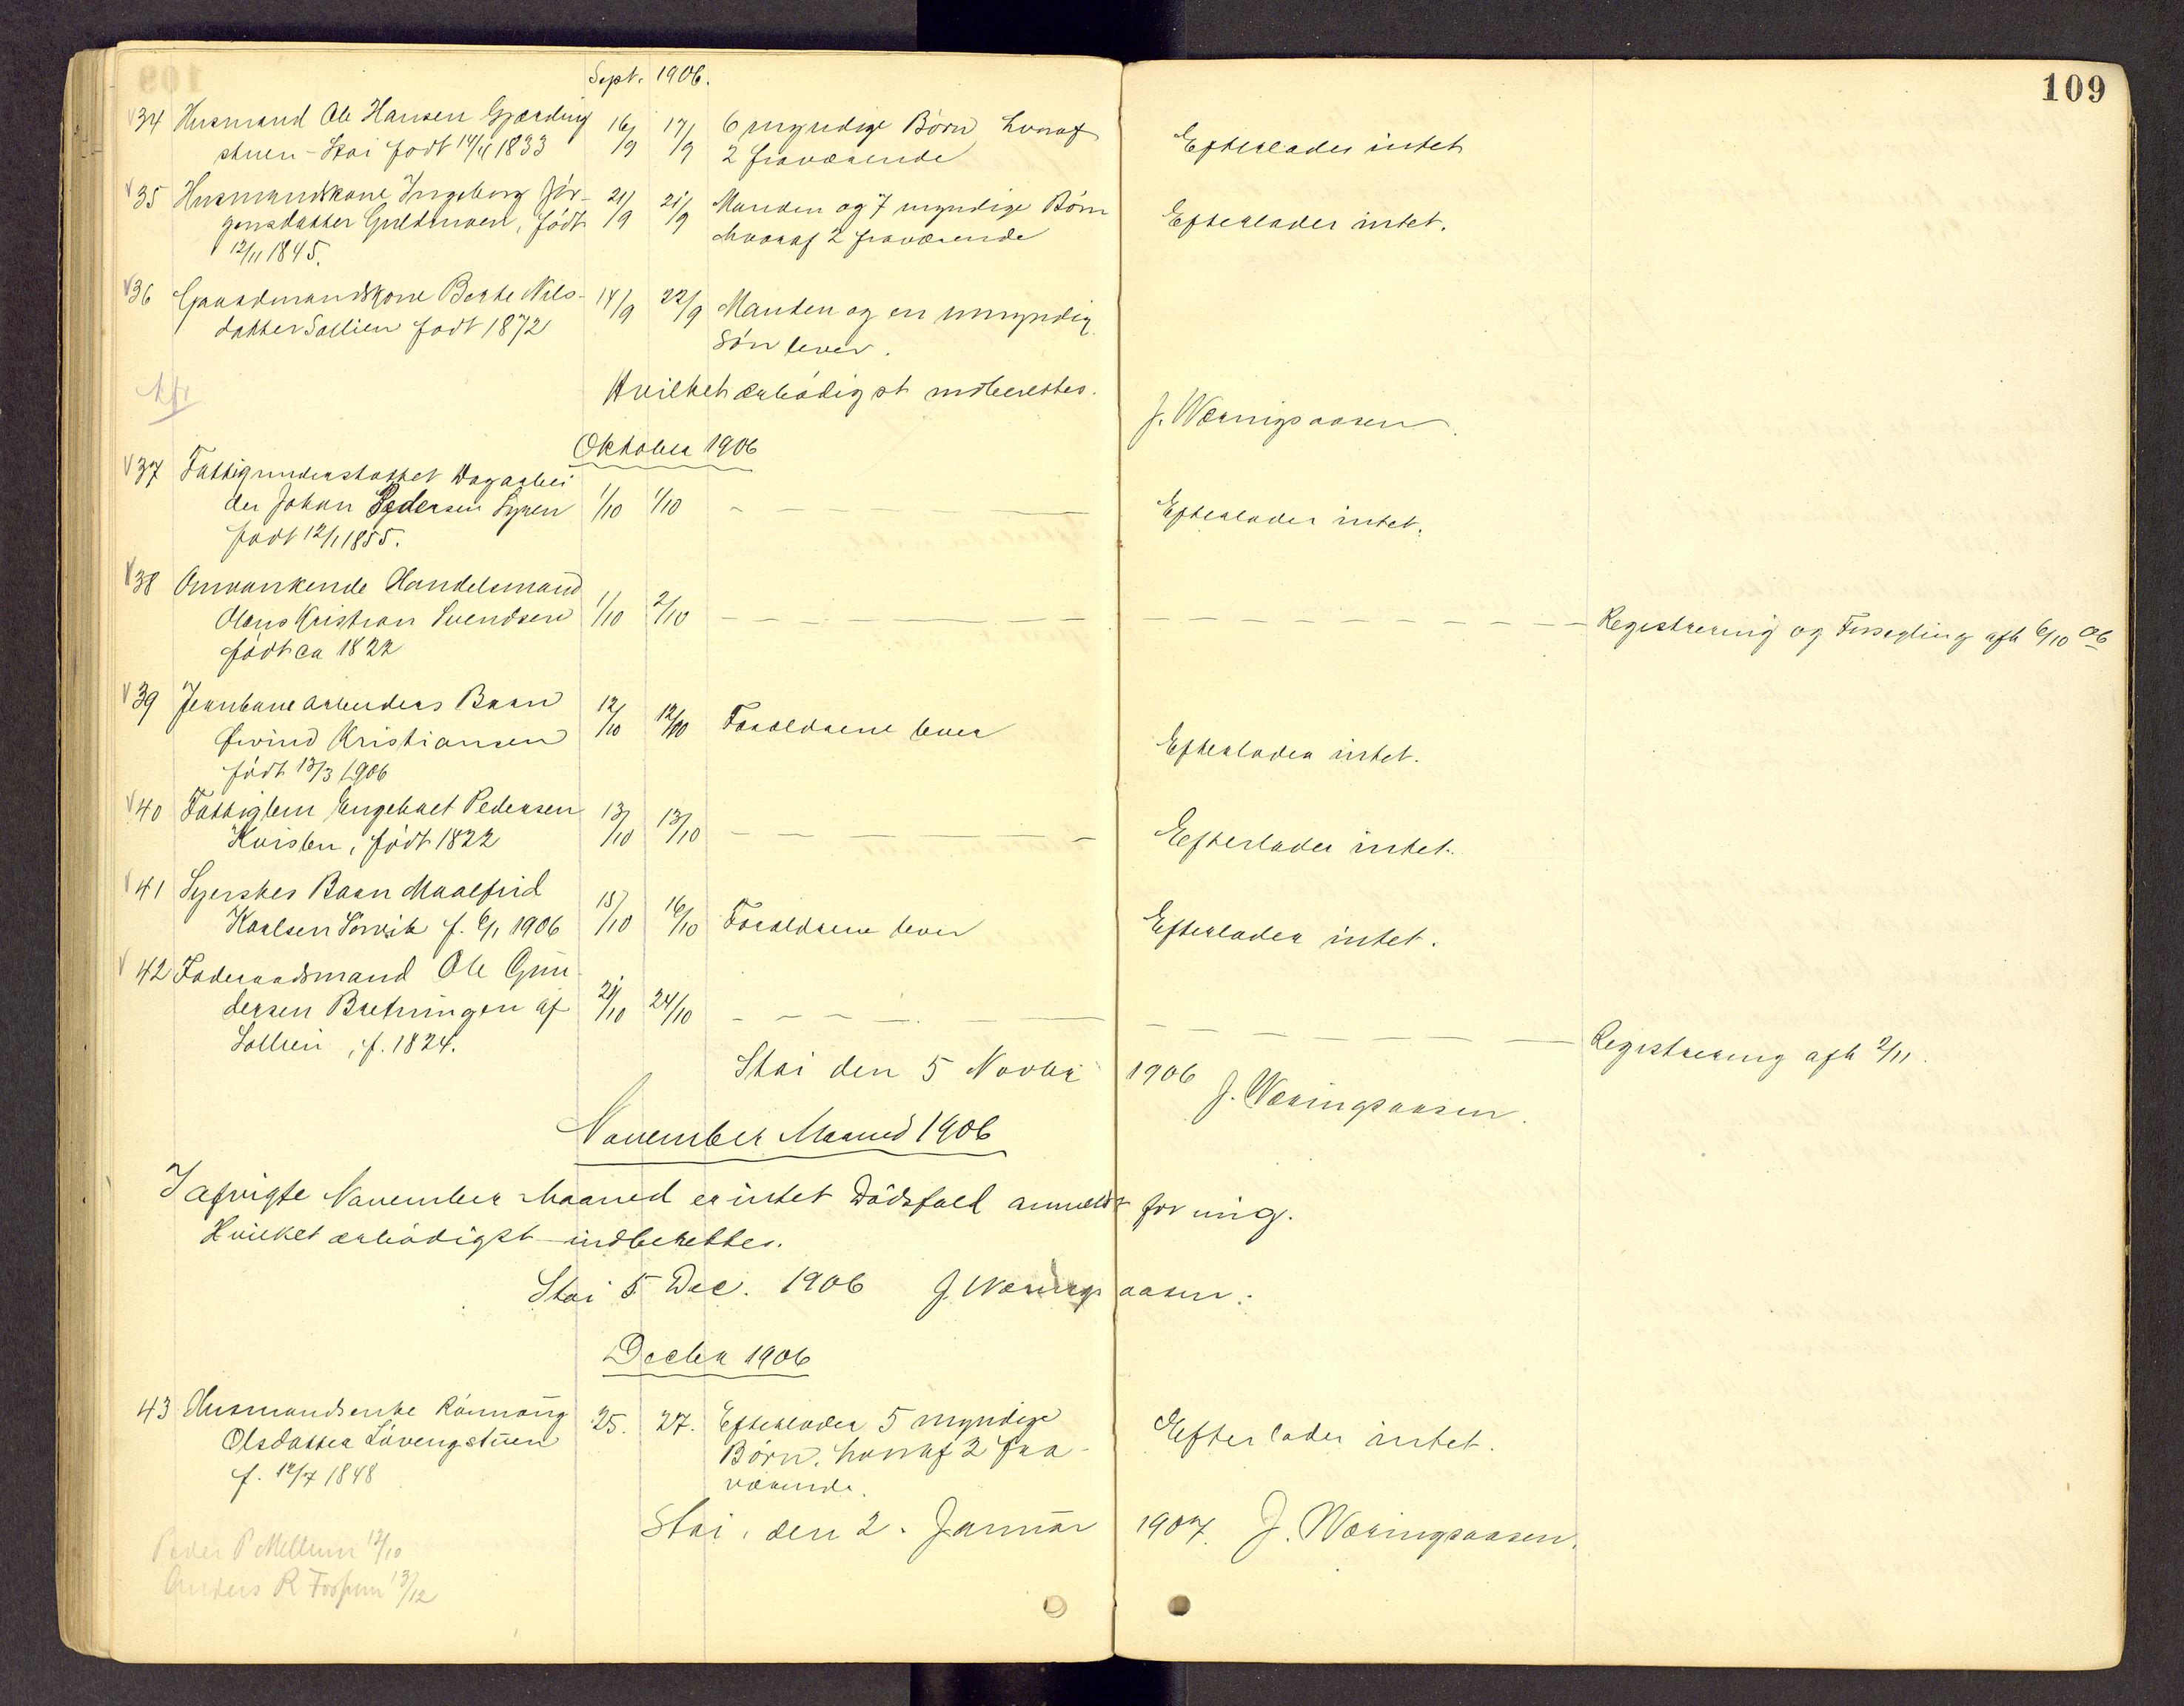 109
Sept. 1906.
34 Husmand Ole Hansen Gjærding
stuen - Stai født 14/4 1833
16/9 17/9 6 myndige Børn hvoraf
2 fraværende
Efterlader intet
35 Husmandskone Ingeborg Jør-
gensdatter Guldmoen, født
12/11 1845.
21/9 21/9 Manden og 7 myndige Børn
hvoraf 2 fraværende
Efterlader intet.
36 Gaardmandskone Berte Nils-
datter Sollien født 1872
14/9 22/9 Manden og en umyndig
Søn lever.
Hvilket ærbødigst indberettes.
J. Wæringsaasen
Oktober 1906
37 Fattigunderstøttet Dagarbei
der Johan Pedersen
født 12/1 1855.
1/10 1/10
Efterlader intet.
38 Omvankende Handelsmand
Olaus Kristian Svendsen
født ca 1822
1/10 2/10
Registrering og Forsegling afh 6/10 06
39 Jernbanearbeiders Barn
Øivind Kristiansen
født 13/3 1906
12/10 12/10 Forældrene lever
Efterlader intet.
40 Fattiglem Engebret Pedersen
Kvislen, født 1822
13/10 13/10
Eefterlader intet.
41 Syerskes Barn Maalfrid
Karlsen Sørvik f. 6/1 1906
15/10 16/10 Forældrene lever
Efterlader intet.
42 Føderaadsmand Ole Gun
dersen Bretningen af
Sollien, f. 1824.
21/10 24/10
Registrering afh 2/11.
Stai den 5 Novbr 1906
J. Wæringsaasen.
November Maaned 1906
I afvigte November Maaned er intet Dødsfald anmeldt for mig.
Hvilket ærbødigst indberettes.
Stai 5 Dec. 1906 J. Wæringsaasen.
Decbr 1906
43 Husmandsenke Rønnaug
Olsdatter Løvengstuen
f. 12/7 1848
25. 27. Efterlader 5 myndige
Børn. hvoraf 2 fra-
værende.
Efterlader intet.
Stai, den 2. Januar 1907. J. Wæringsaasen.
Peder P Mellum 12/10
Anders R 13/12